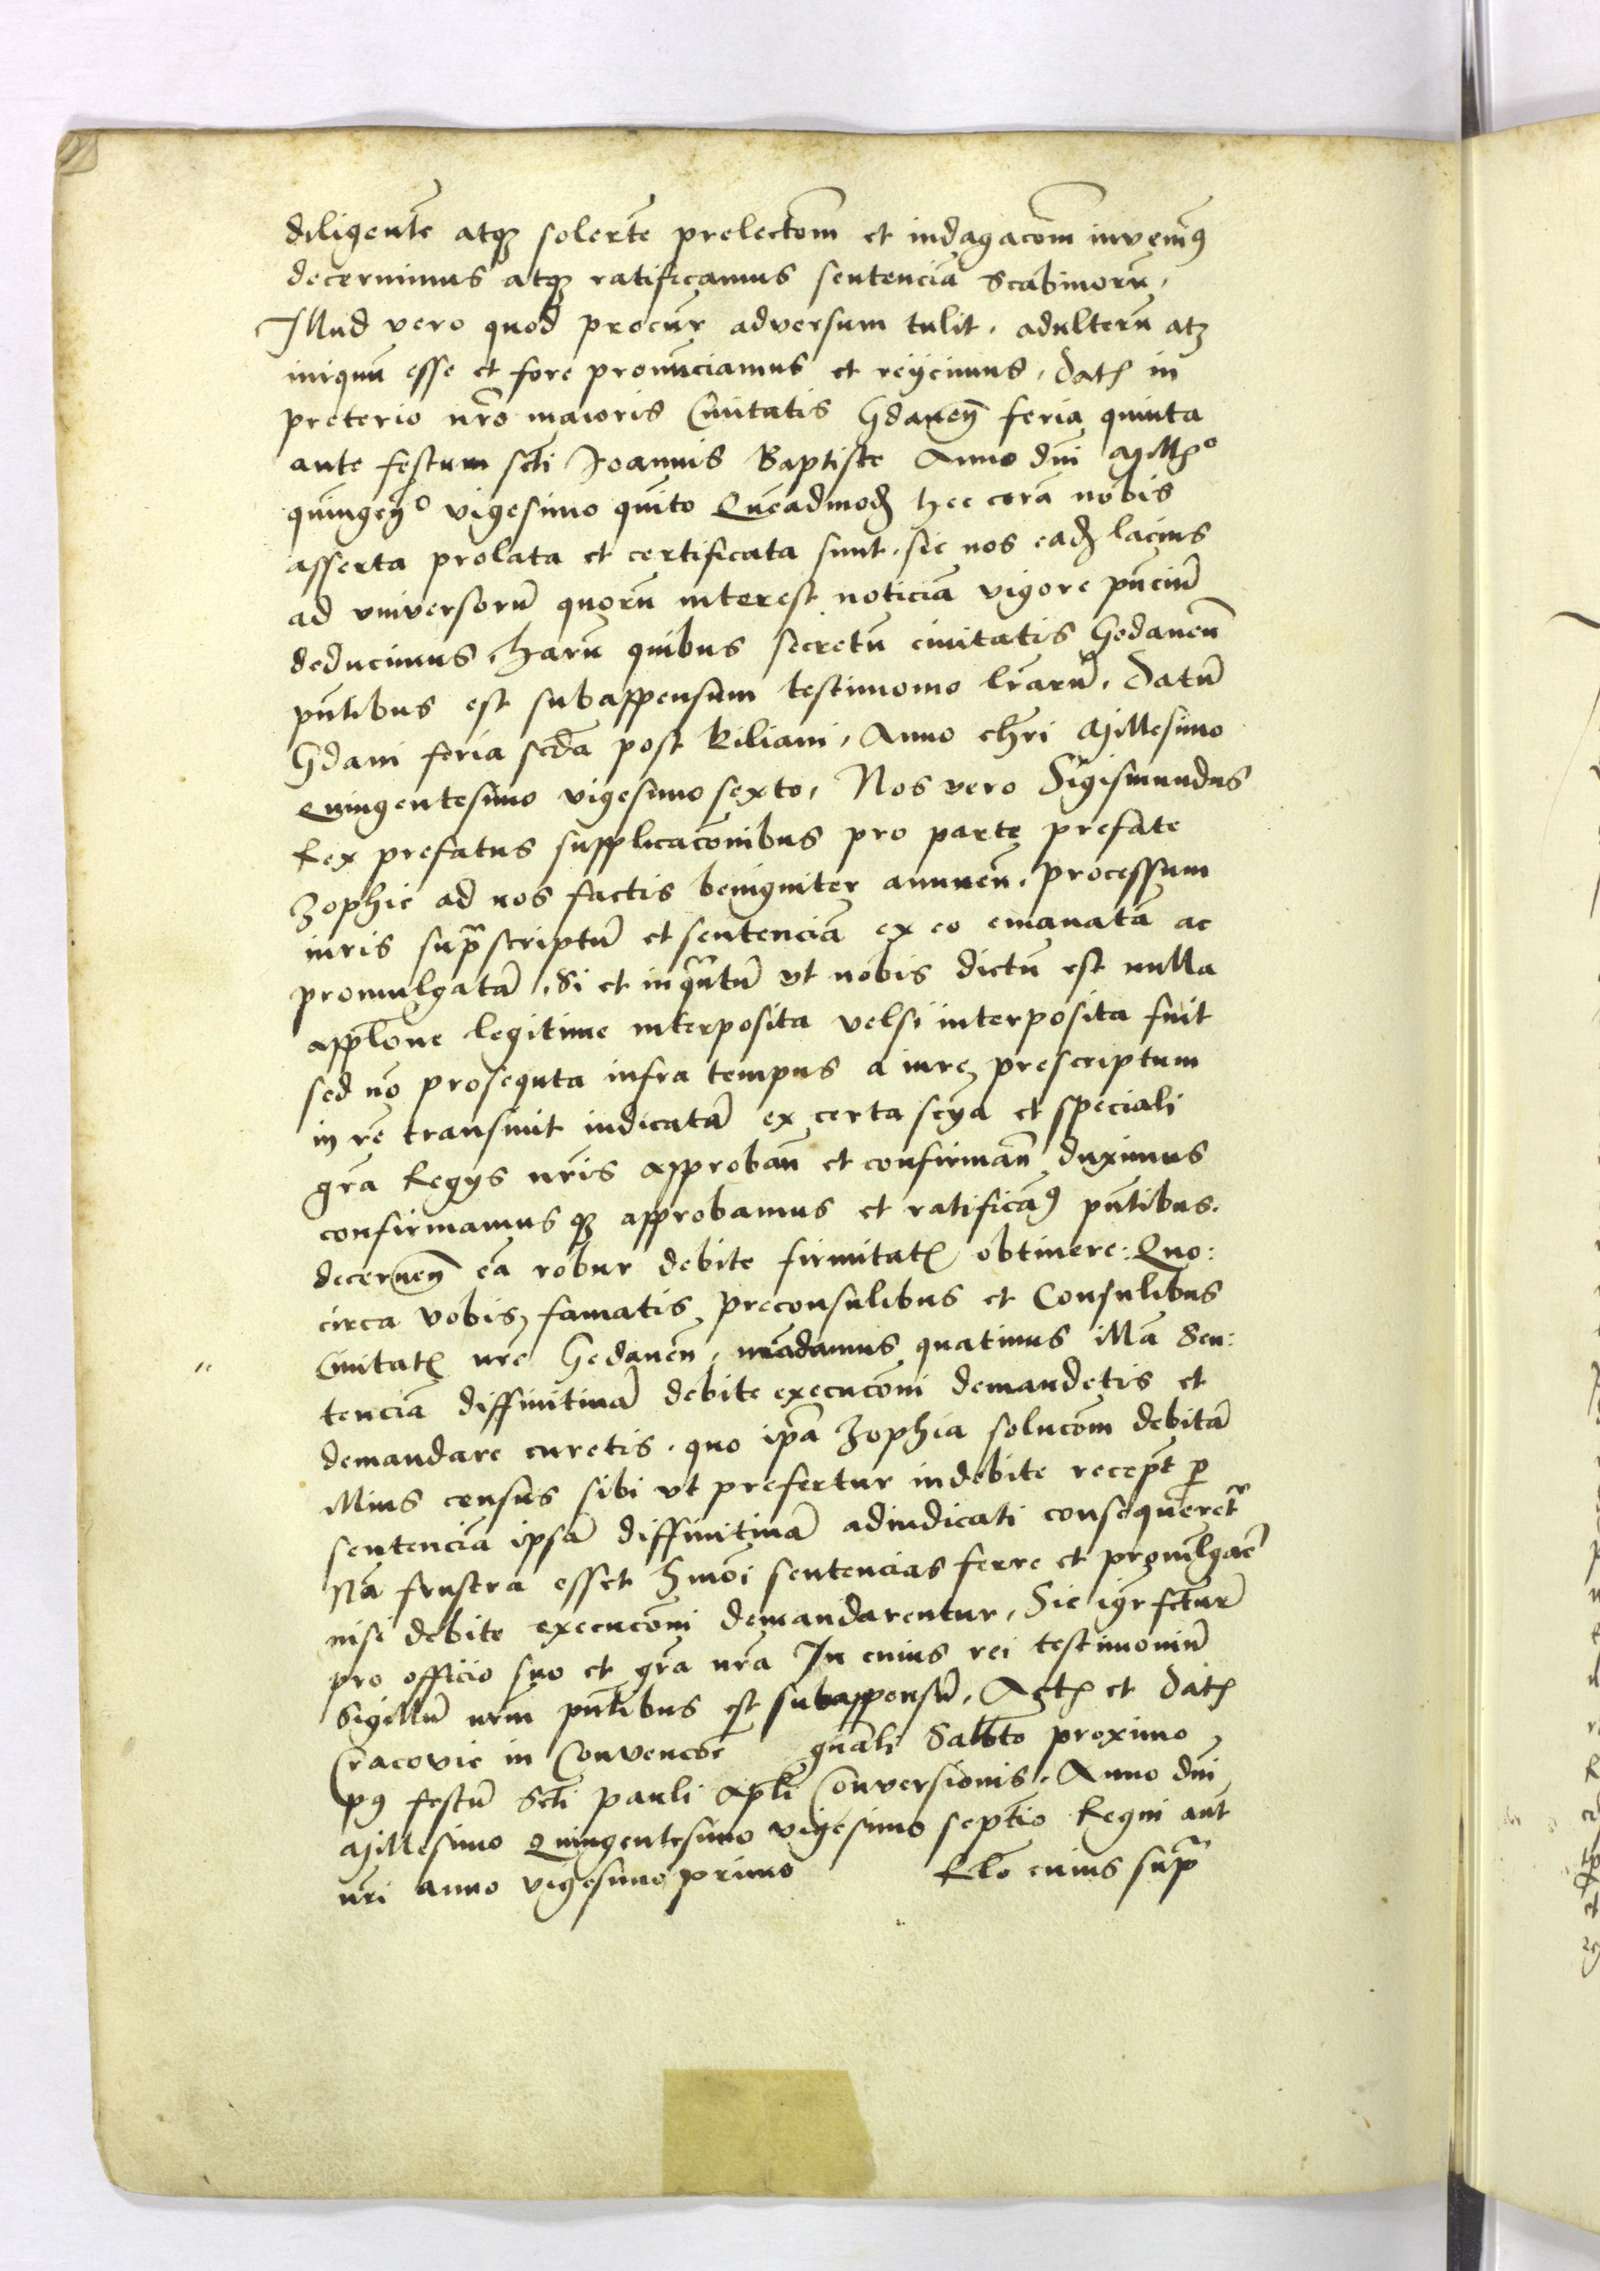 diligente͂ atqȝ solerte͂ prelectom̄ et indagacom̄ invenim9
decernimus atqȝ ratificamus sentenciā Scabinorū,
Illud vero quod procur̄ adversum tulit, adulterū atqȝ
iniquū esse et fore pronūciamus et reijcimus, Datꝭ in
preterio nr̄o maioris Civitatis Gdanen̄ feria quinta
ante festum scti Joannis Baptiste Anno dni Millꝭo
quingen̄o vigesimo quīto Quēadmodꝭ hec corā nobis
asserta prolata et certificata sunt, sic nos eadꝭ lacius
ad universorū quorū interest noticiā vigore pn̄ciū
deducimus, harū quibus secretū civitatis Gedanen̄
pn̄tibus est subappensum testimonio lr̄arū, Datū
Gdani feria scd̄a post Kiliani, Anno chr̄i Millesimo
Quingentesimo vigesimo sexto, Nos vero Sigismundus
Rex prefatus supplicacōnibus pro parte prefate
Zophie ad nos factis benigniter annuen̄, processum
iuris supra scriptū et sentenciā ex eo emanatā ac
promulgatā, Si et inquātū ut nobis dictū est nulla
applōne legitime interposita velsi interposita fuit
sed nō prosequta infra tempus a iure prescriptum
in rē transivit iudicatā ex certa scīa et speciali
grā Regijs nr̄is approban̄ et confirman̄ duximus
confirmamus qȝ approbamus et ratificam9 pn̄tibus,
decernen̄ eā robur debite firmitatꝭ obtinere: Quo:
circa vobis, famatis, preconsulibus et Consulibus
Civitatꝭ nr̄e Gedanen̄, mādamus quatinus illā Sen:
tenciā diffinitivā debite execucōni demandetis et
demandare curetis, quo ip̄a Zophia solucōm debitā
illius census sibi ut prefertur indebite recept̄ p̱
sentenciā ipsā diffinitivā adiudicati consequeretr
Nā frustra esset hmōi sentencias ferre et promulgare
nisi debite execucōni demandarentur, Sic igr̄ fctur̄
pro officio suo et grā nr̄a In cuius rei testimoniū
Sigillū nrm̄ pn̄tibus est subappensū, Actꝭ et Datꝭ
Cracovie in Convencōe gnāli Sabbto proximo
p9 festū Scti Pauli Apl̄i Conversionis, Anno dni
Millesimo Quingentesimo vigesimo septīo Regni aūt
nr̄i anno vigesimo primo Rl̄o cuius supra